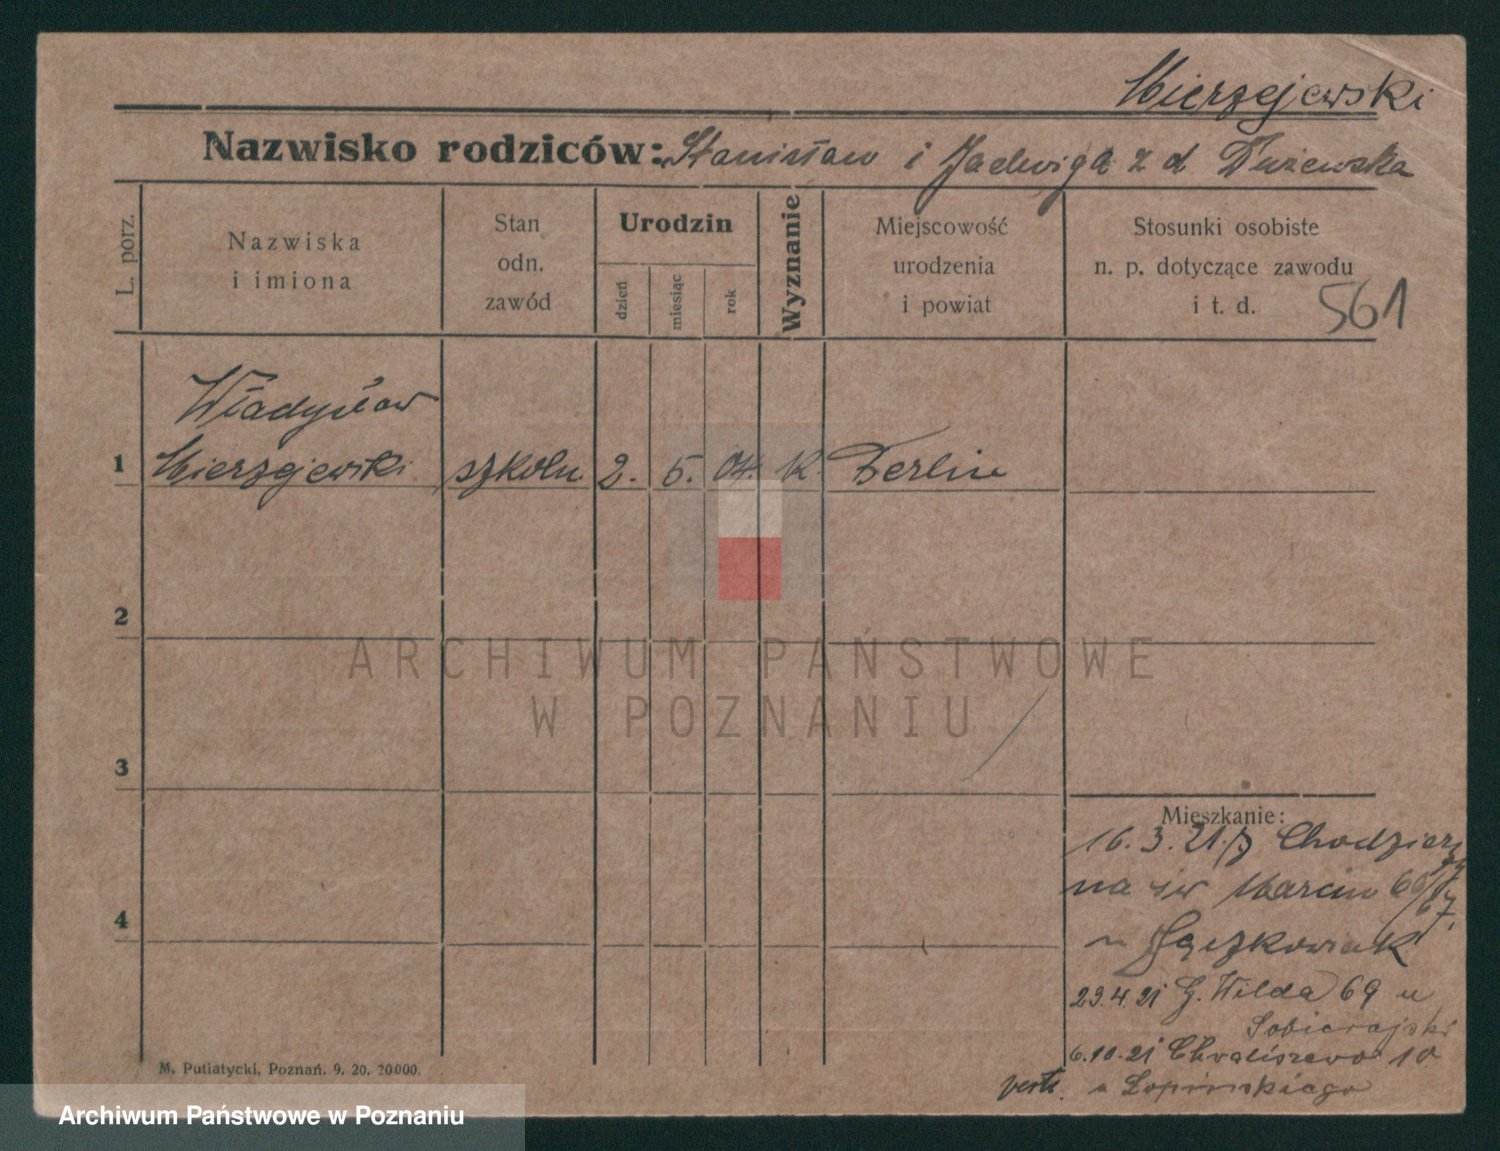 Mierzejewski
Nazwisko rodziców: Stanisław i Jadwiga z d Dużewska
L. porz.
Nazwiska
i imiona
Stan
odn.
zawód
Urodzin
dzień
miesiąc
rok
Wyznanie
Miejscowość
urodzenia
i powiat
Stosunki osobiste
n. p. dotyczące zawodu
i t. d.
561
Władysław
1 Mierzejewski szkoln. 2. 5. 04. K. Berlin
2
3
4
Mieszkanie:
16.3.21. z Chodzież
na św Marcin 66/67
u Jączkowiak
29.4.21 G. Wilda 69 u
Sobierajski
6.10.21 Chwaliszewo 10
u Łopińskiego
M. Putiatycki, Poznań. 9. 20. 20000.
ARCHIWUM PAŃSTWOWE
W POZNANIU
Archiwum Państwowe w Poznaniu